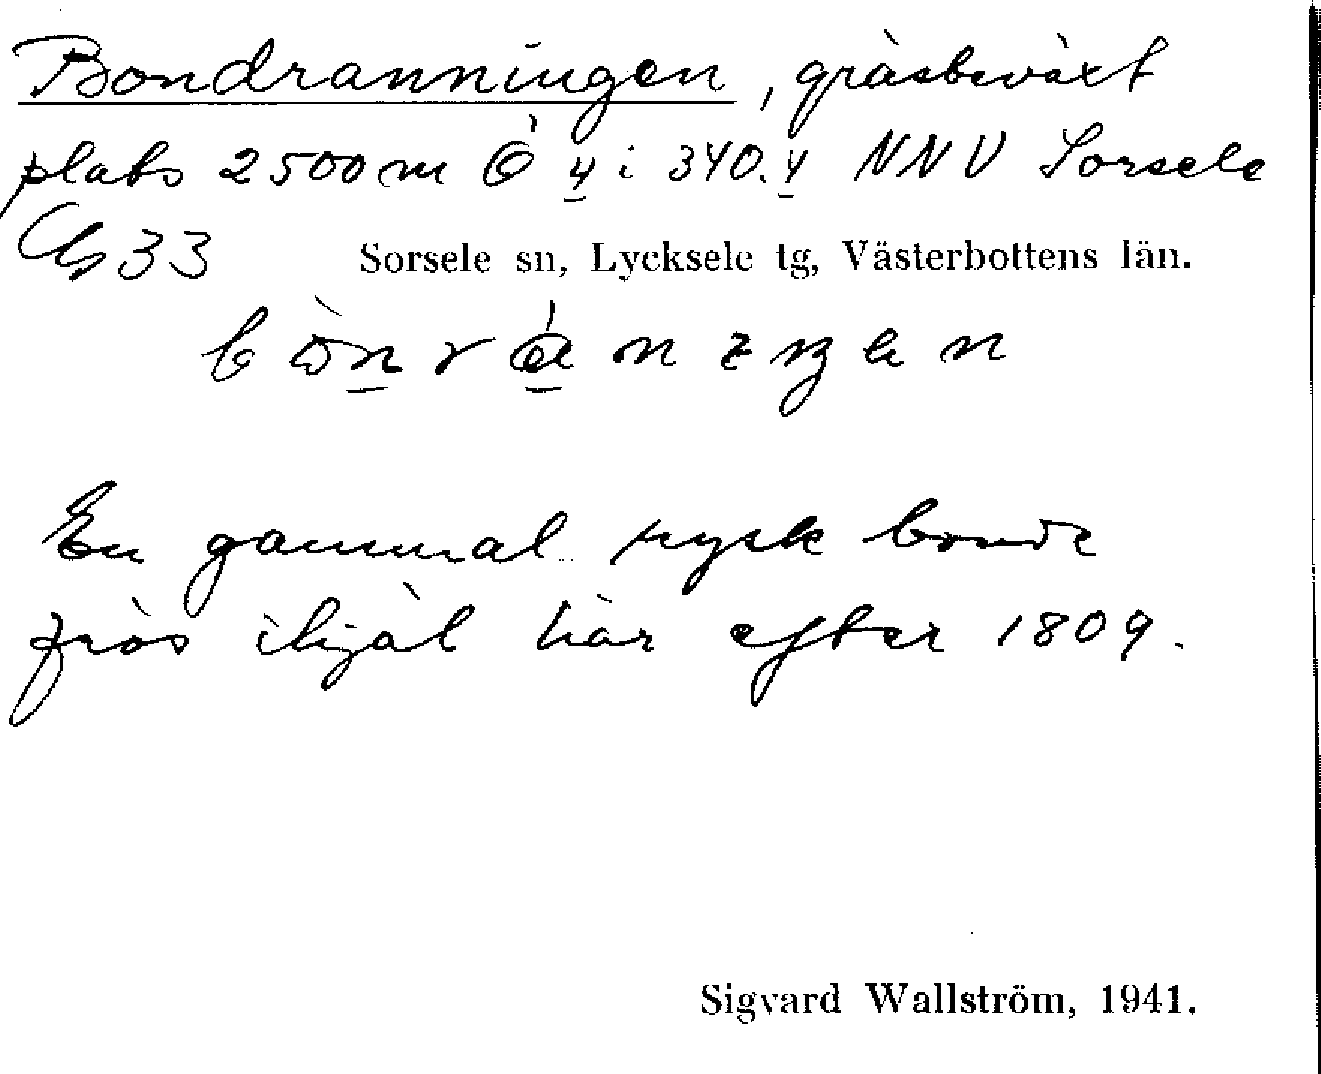 Bondranningen, gräsbeväxt
plats 2500 m Ö 4 i 340.4 NNV Sorsele
33 Sorsele sn, Lycksele tg, Västerbottens län.
En gammal rysk bonde
frös ihjäl här efter 1809.
Sigvard Wallström, 1941.